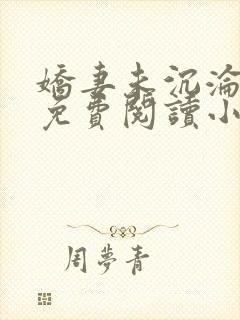 嬌妻未沉淪
免費閱讀小
周夢青